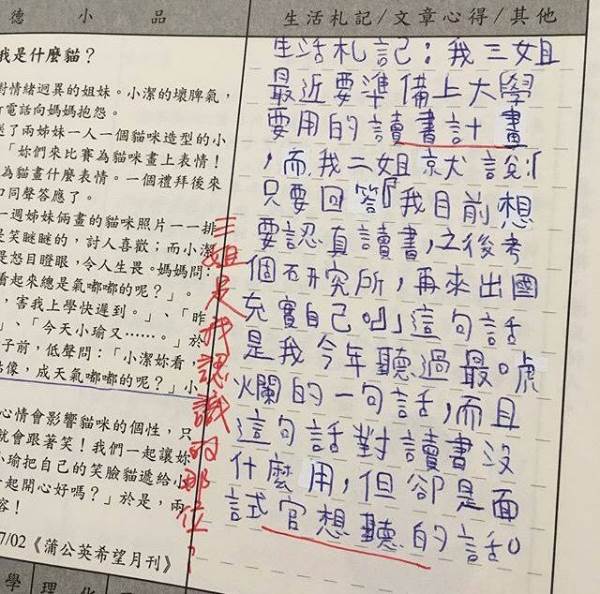 德 小 品
生活札記/文章心得/其他
我是什麼貓？
對情緒迥異的姐妹。小潔的壞脾氣，
電話向媽媽抱怨。
送了兩姊妹一人一個貓咪造型的小
「妳們來比賽為貓咪畫上表情！
為貓畫什麼表情。一個禮拜後來
同聲答應了。
一週姊妹倆畫的貓咪照片一一排
是笑瞇瞇的，討人喜歡；而小潔
是怒目瞪眼，令人生畏。媽媽問：
看起來總是氣嘟嘟的呢？」。
，害我上學快遲到。」、「昨
」、「今天小瑜又……。」於
子前，低聲問：「小潔妳看，
像，成天氣嘟嘟的呢？」小
心情會影響貓咪的個性，只
就會跟著笑！我們一起讓妳
小瑜把自己的笑臉貓遞給小
起開心好嗎？」於是，兩
容！
7/02《蒲公英希望月刊》
學 理 化
生活札記：我三姐
最近要準備上大學
要用的讀書計畫
，而我二姐就說：「
只要回答「我目前想
要認真讀書，之後考
個研究所，再來出國
充實自己」這句話
是我今年聽過最唬
爛的一句話，而且
這句話對讀書沒
什麼用，但卻是面
試官想聽的話。
三姐是我認識的那位？